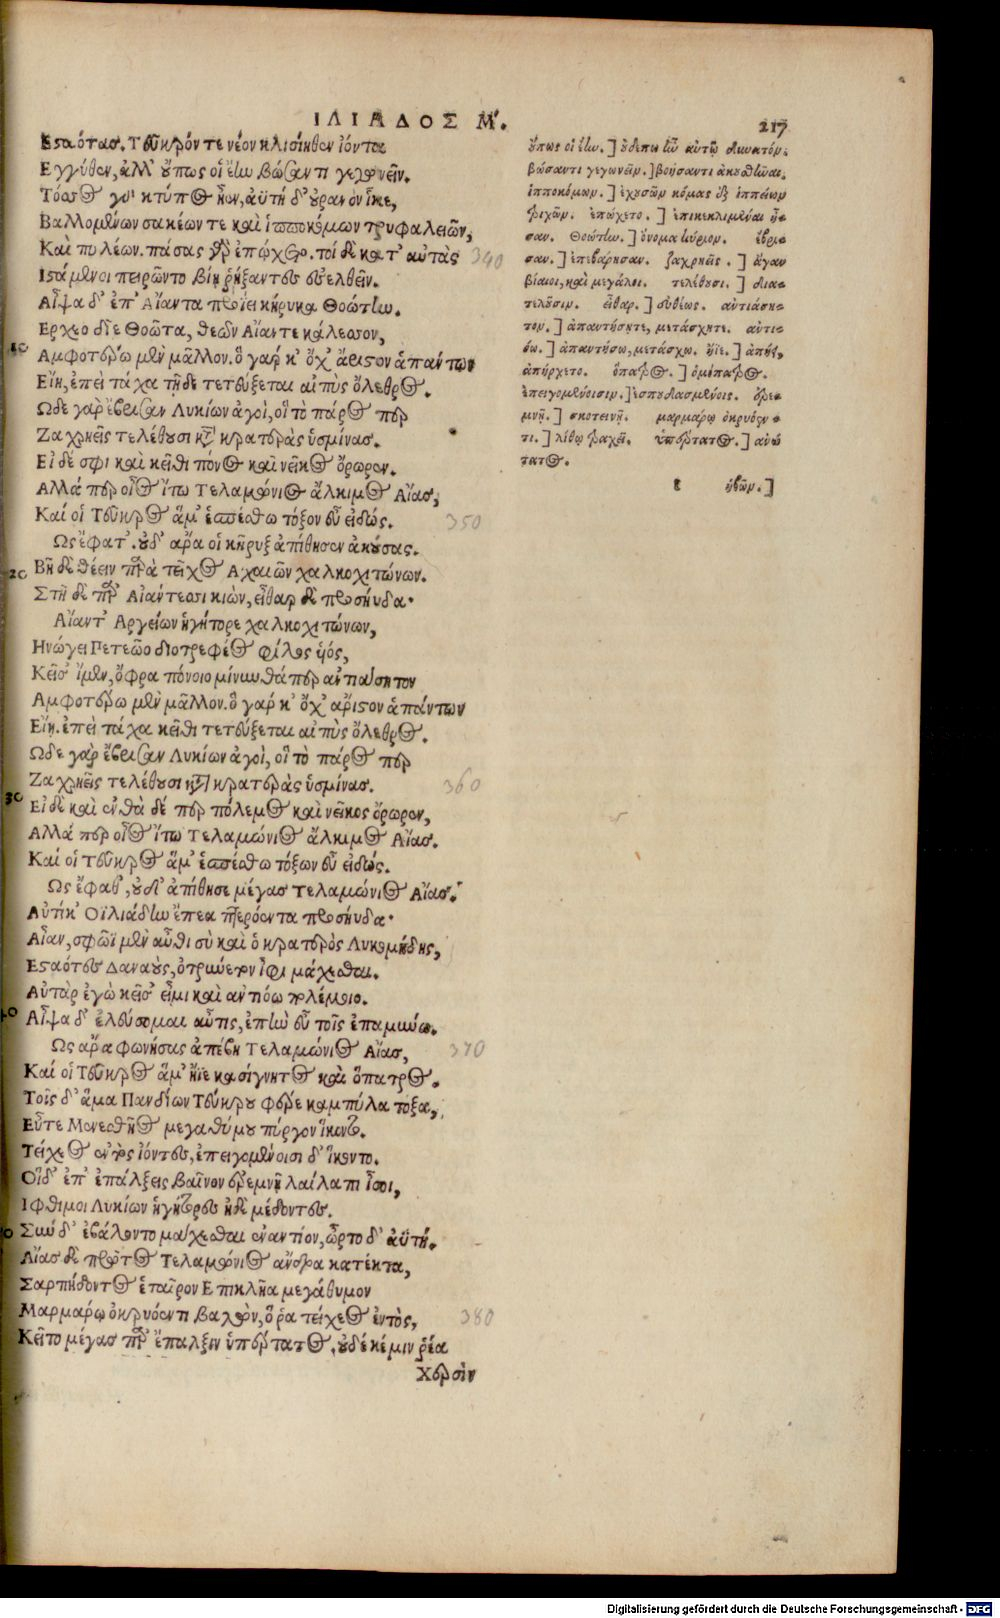 ΙΛΙΑΔΟΣ Μ.
217
Εσαότας. Τεῦκρόν τε νέον κλισίηθεν ἰόντα
Εγγύθεν, ἀλλ' οὔπως οἱ ἔἰω βώσαντι γεγωνεῖν.
Τόσος γὰρ κτύπος ἦεν, ἀϋτὴ δ' οὐρανὸν ἷκε,
Βαλλομένων σακέων τε καὶ ἱπποκόμων τρυφαλειῶν,
Καὶ πυλέων. πάσας γὰρ ἐπῴχετο. τοὶ δὲ κατ' αὐτὰς 340
Ιστάμενοι πειρῶντο βίῃ ῥήξαντες εἰσελθεῖν.
Αἶψα δ' ἐπ' Αἴαντα προΐει κήρυκα Θοώτην.
Ερχεο δῖε Θοῶτα, θεῶν Αἴαντε κάλεσσον,
10
Αμφοτέρω μὲν μᾶλλον. ὃ γάρ κ' ὄχ' ἄριστον ἁπάντων
Εἴη, ἐπεὶ τάχα τῇδε τετεύξεται αἰπὺς ὄλεθρος.
Ωδε γὰρ ἔβρισαν Λυκίων ἀγοὶ, οἳ τὸ πάρος περ
Ζαχρηεῖς τελέθουσι κατὰ κρατερὰς ὑσμίνας.
Εἰ δέ σφι καὶ κεῖθι πόνος καὶ νεῖκος ὄρωρεν.
Αλλά περ οἶος ἴτω Τελαμώνιος ἄλκιμος Αἴας,
Καί οἱ Τεῦκρος ἅμ' ἑσπέσθω τόξων εὖ εἰδώς. 350
Ως ἔφατ'. οὐδ' ἄρα οἱ κῆρυξ ἀπίθησεν ἀκούσας.
20
Βῆ δὲ θέειν παρὰ τεῖχος Αχαιῶν χαλκοχιτώνων.
Στῆ δὲ παρ' Αἰάντεσσι κιὼν, εἶθαρ δὲ προσηύδα·
Αἴαντ' Αργείων ἡγήτορε χαλκοχιτώνων,
Ηνώγει Πετεῶο διοτρεφέος φίλος υἱός,
Κεῖσ' ἴμεν, ὄφρα πόνοιο μίνυνθά περ ἀντιάσητον
Αμφοτέρω μὲν μᾶλλον. ὃ γάρ κ' ὄχ' ἄριστον ἁπάντων
Εἴη. ἐπεὶ τάχα κεῖθι τετεύξεται αἰπὺς ὄλεθρος.
Ωδε γὰρ ἔβρισαν Λυκίων ἀγοὶ, οἳ τὸ πάρος περ
Ζαχρηεῖς τελέθουσι κατὰ κρατερὰς ὑσμίνας. 360
30
Εἰ δὲ καὶ ἐνθάδε περ πόλεμος καὶ νεῖκος ὄρωρεν,
Αλλά περ οἶος ἴτω Τελαμώνιος ἄλκιμος Αἴας.
Καί οἱ Τεῦκρος ἅμ' ἑσπέσθω τόξων εὖ εἰδώς.
Ως ἔφαθ', οὐδ' ἀπίθησε μέγας Τελαμώνιος Αἴας.
Αὐτίκ' Οϊλιάδην ἔπεα πτερόεντα προσηύδα·
Αἶαν, σφῶϊ μὲν αὖθι σὺ καὶ ὁ κρατερὸς Λυκομήδης,
Εσαότες Δαναοὺς, ὀτρύνετον ἶφι μάχεσθαι.
Αὐτὰρ ἐγὼ κεῖσ' εἶμι καὶ ἀντιόω πολέμοιο.
40
Αἶψα δ' ἐλεύσομαι αὖτις, ἐπὴν εὖ τοῖς ἐπαμύνω.
Ως ἄρα φωνήσας ἀπέβη Τελαμώνιος Αἴας, 370
Καί οἱ Τεῦκρος ἅμ' ἤϊε κασίγνητος καὶ ὄπατρος.
Τοῖς δ' ἅμα Πανδίων Τεύκρου φέρε καμπύλα τόξα,
Εὖτε Μενεσθῆος μεγαθύμου πύργον ἵκοντο.
Τείχεος ἐντὸς ἰόντες, ἐπειγομένοισι δ' ἵκοντο.
Οἳ δ' ἐπ' ἐπάλξεις βαῖνον ἐρεμνῇ λαίλαπι ἶσοι,
Ιφθιμοι Λυκίων ἡγήτορες ἠδὲ μέδοντες.
50
Σὺν δ' ἐβάλοντο μάχεσθαι ἐναντίον, ὦρτο δ' ἀϋτή.
Αἴας δὲ πρῶτος Τελαμώνιος ἄνδρα κατέκτα,
Σαρπήδοντος ἑταῖρον Επικλῆα μεγάθυμον
Μαρμάρῳ ὀκρυόεντι βαλὼν, ὅ ῥα τείχεος ἐντὸς, 380
Κεῖτο μέγας παρ' ἔπαλξιν ὑπέρτατος, οὐδέ κέ μιν ῥέα
Χερσὶν
οὔπως οἱ ἔἰω.] οὐδέπω ἦν αὐτῷ δυνατόν.
βώσαντι γεγωνεῖν.] βοήσαντι ἀκουσθῆναι.
ἱπποκόμων.] ἐχουσῶν κόμας ἐξ ἱππείων
τριχῶν. ἐπώχετο.] ἐπικεκλιμέναι ἦ-
σαν. Θοώτην.] ὄνομα κύριον. ἔβρι-
σαν.] ἐπεβάρησαν. ζαχρηεῖς.] ἄγαν
βίαιοι, καὶ μεγάλοι. τελέθουσι.] δια-
τελοῦσιν. εἶθαρ.] εὐθέως. ἀντιάση-
τον.] ἀπαντήσητε, μετάσχητε. ἀντι-
όω.] ἀπαντήσω, μετάσχω. ἤϊε.] ἀπῄει,
ἀπήρχετο. ὄπατρος.] ὁμόπατρος.
ἐπειγομένοισιν.] ἐσπουδασμένοις. ἐρε-
μνῇ.] σκοτεινῇ. μαρμάρῳ ὀκρυόεν-
τι.] λίθῳ τραχεῖ. ὑπέρτατος.] ἀνώ
τατος.
ε ἡβῶν.]
Digitalisierung gefördert durch die Deutsche Forschungsgemeinschaft - DFG